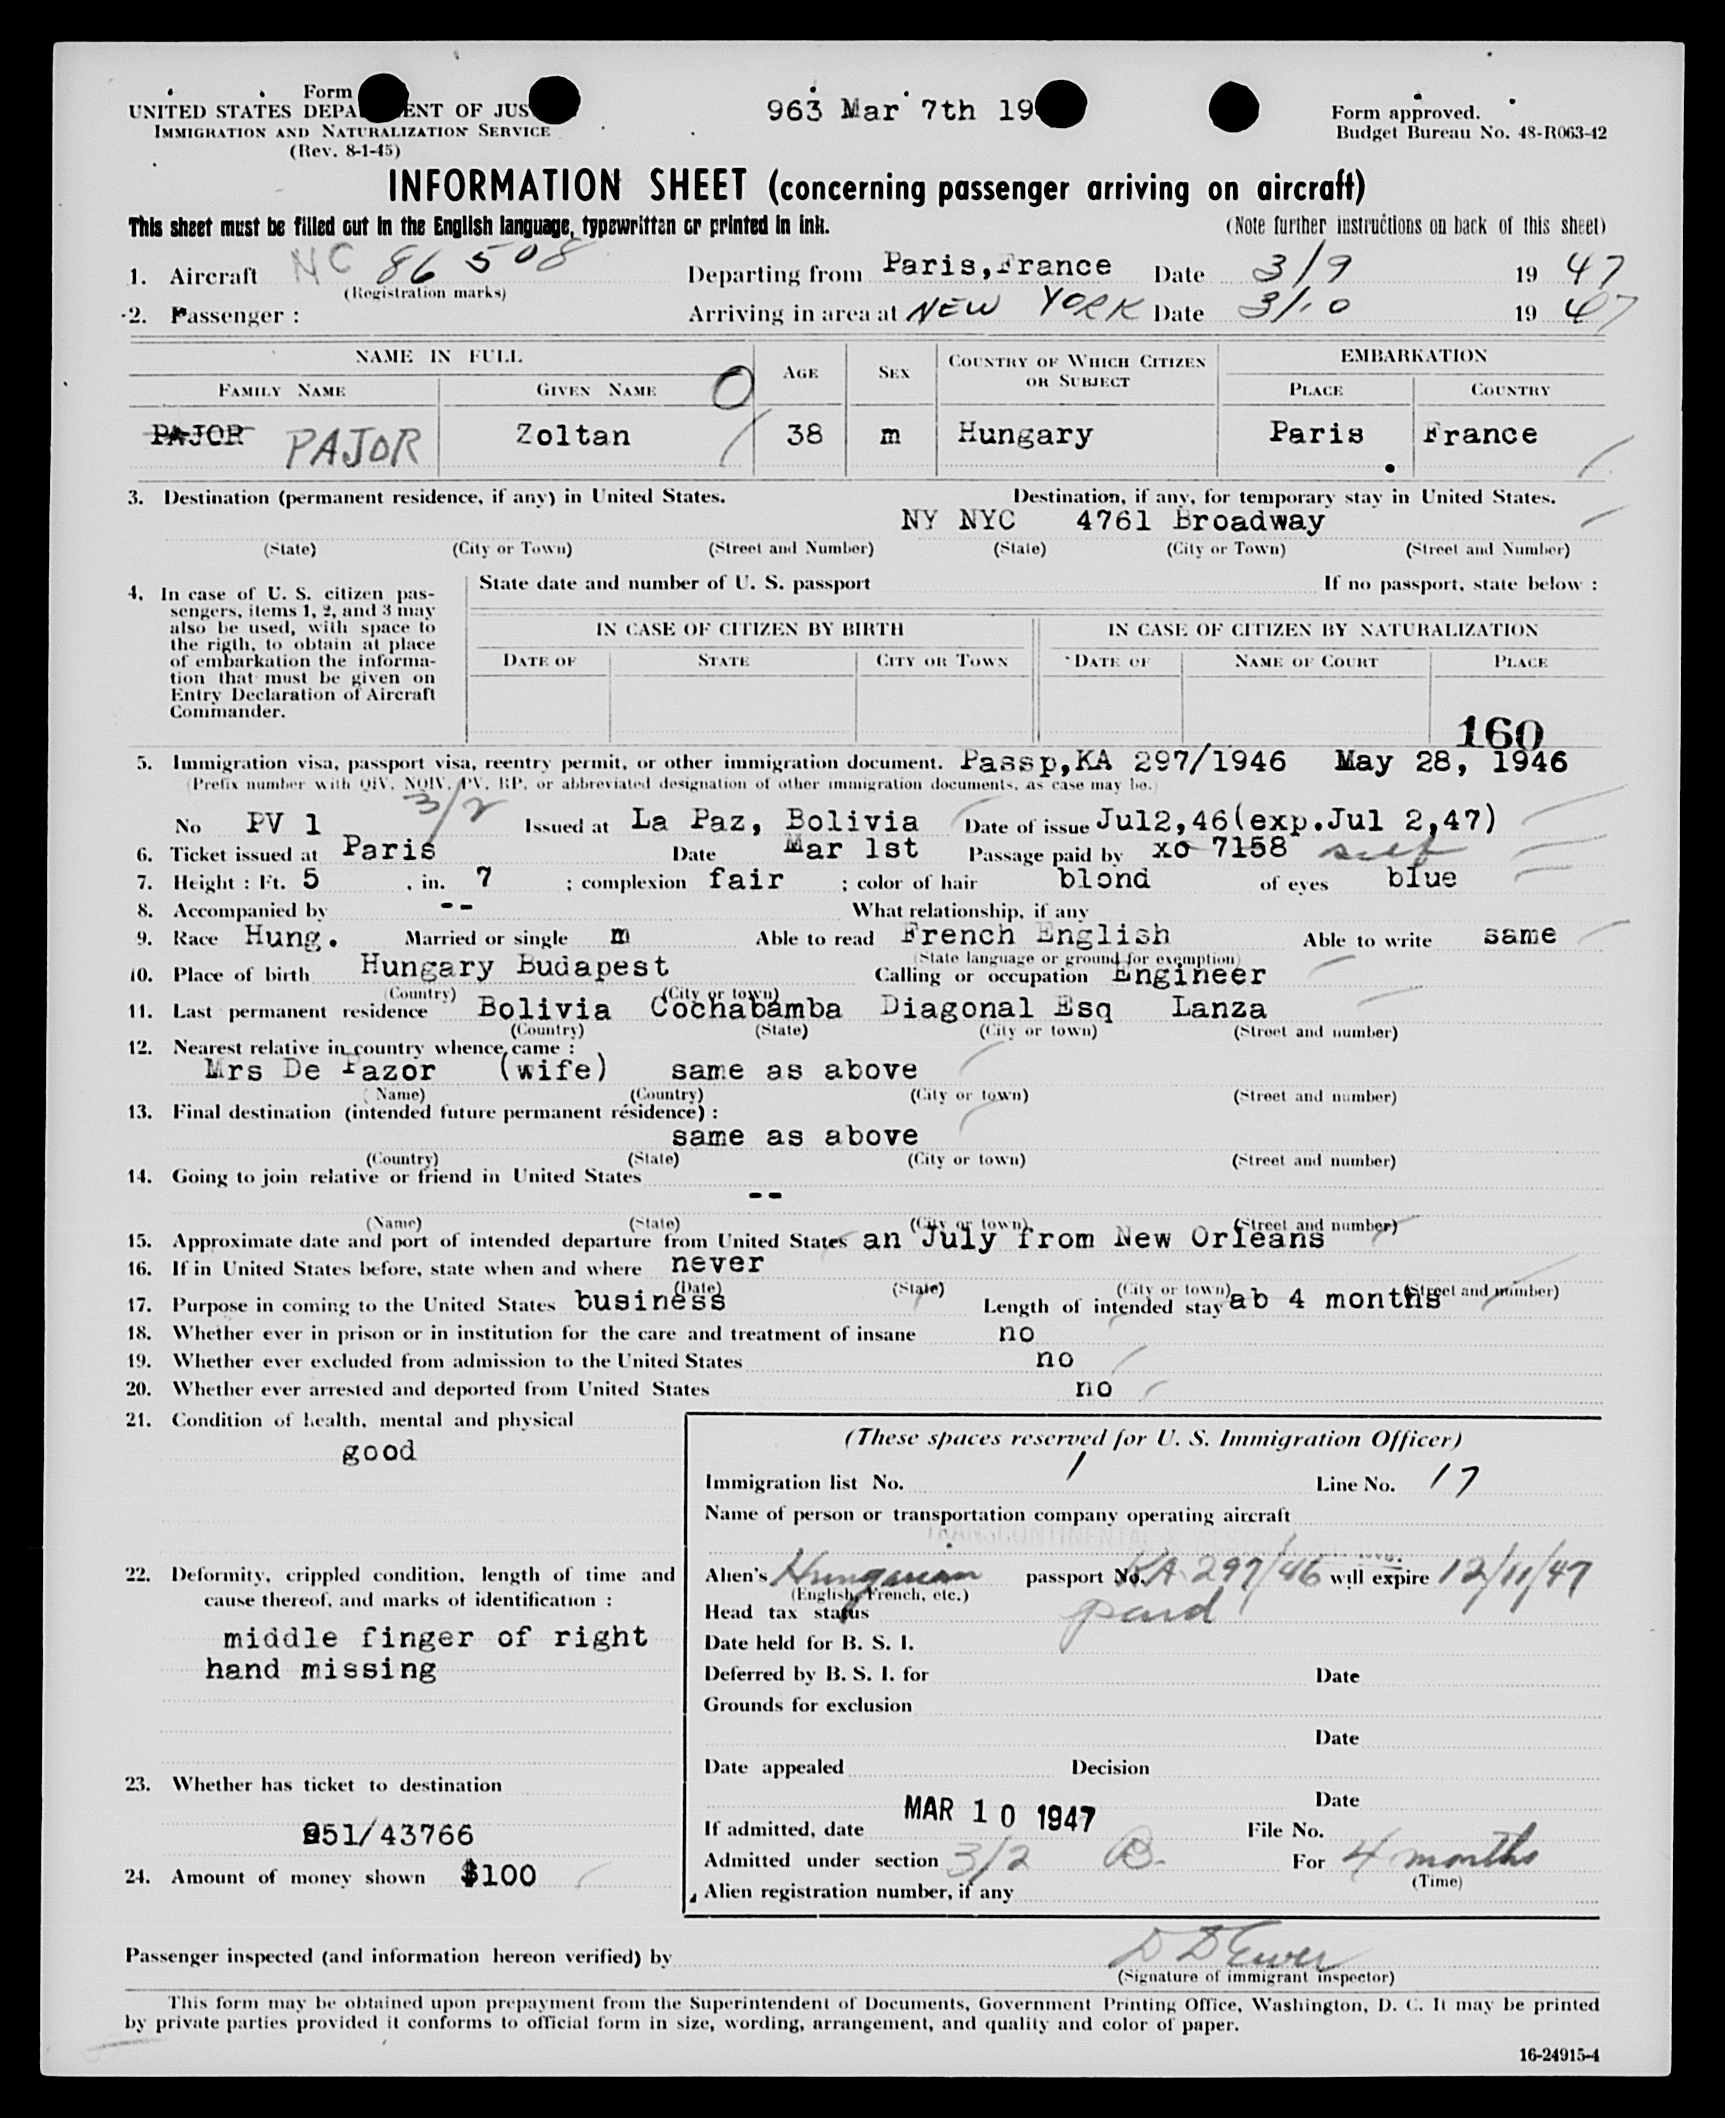 Form
UNITED STATES DEPA ENT OF JUS
963 Mar 7th 19
Form approved.
IMMIGRATION AND NATURALIZATION SERVICE
Budget Bureau No. 48-R063-42
(Rev. 8-1-45)
INFORMATION SHEET (concerning passenger arriving on aircraft)
This sheet must be filled out in the English language, typewritten or printed in ink. (Note further instructions on back of this sheet)
1. Aircraft NC 86508 Departing from Paris,France Date 3/9 19 47
(Registration marks)
2. Passenger : Arriving in area at NEW YORK Date 3/10 19 47
NAME IN FULL AGE SEX COUNTRY OF WHICH CITIZEN OR SUBJECT EMBARKATION
FAMILY NAME GIVEN NAME PLACE COUNTRY
PAJOR PAJOR Zoltan 38 m Hungary Paris France
3. Destination (permanent residence, if any) in United States. Destination, if any, for temporary stay in United States.
NY NYC 4761 Broadway
(State) (City or Town) (Street and Number) (State) (City or Town) (Street and Number)
4. In case of U. S. citizen pas-
sengers, items 1, 2, and 3 may
also be used, with space to
the rigth, to obtain at place
of embarkation the informa-
tion that must be given on
Entry Declaration of Aircraft
Commander.
State date and number of U. S. passport If no passport, state below :
IN CASE OF CITIZEN BY BIRTH IN CASE OF CITIZEN BY NATURALIZATION
DATE OF STATE CITY OR TOWN DATE OF NAME OF COURT PLACE
160
5. Immigration visa, passport visa, reentry permit, or other immigration document. Passp,KA 297/1946 May 28, 1946
(Prefix number with QIV, NQIV, PV, RP, or abbreviated designation of other immigration documents, as case may be.)
3/2
No PV 1 Issued at La Paz, Bolivia Date of issue Jul2,46(exp.Jul 2,47)
6. Ticket issued at Paris Date Mar 1st Passage paid by xo 7158 self
7. Height : Ft. 5 , in. 7 ; complexion fair ; color of hair blond of eyes blue
8. Accompanied by -- What relationship, if any
9. Race Hung. Married or single m Able to read French English Able to write same
(State language or ground for exemption)
10. Place of birth Hungary Budapest Calling or occupation Engineer
(Country) (City or town)
11. Last permanent residence Bolivia Cochabamba Diagonal Esq Lanza
(Country) (State) (City or town) (Street and number)
12. Nearest relative in country whence came :
Mrs De Pazor (wife) same as above
(Name) (Country) (City or town) (Street and number)
13. Final destination (intended future permanent résidence) :
same as above
(Country) (State) (City or town) (Street and number)
14. Going to join relative or friend in United States
--
(Name) (State) (City or town) (Street and number)
15. Approximate date and port of intended departure from United States an July from New Orleans
16. If in United States before, state when and where never
(Date) (State) (City or town) (Street and number)
17. Purpose in coming to the United States business Length of intended stay ab 4 months
18. Whether ever in prison or in institution for the care and treatment of insane no
19. Whether ever excluded from admission to the United States no
20. Whether ever arrested and deported from United States no
21. Condition of health, mental and physical
good
22. Deformity, crippled condition, length of time and
cause thereof, and marks of identification :
middle finger of right
hand missing
23. Whether has ticket to destination
951/43766
24. Amount of money shown $100
(These spaces reserved for U. S. Immigration Officer)
Immigration list No. 1 Line No. 17
Name of person or transportation company operating aircraft
Alien's Hungarian passport No. KA 297/46 will expire 12/11/47
(English, French, etc.)
Head tax status paid
Date held for B. S. I.
Deferred by B. S. I. for Date
Grounds for exclusion
Date
Date appealed Decision
Date
If admitted, date MAR 10 1947 File No.
Admitted under section 3/2 B. For 4 months
(Time)
Alien registration number, if any
Passenger inspected (and information hereon verified) by
(Signature of immigrant inspector)
This form may be obtained upon prepayment from the Superintendent of Documents, Government Printing Office, Washington, D. C. It may be printed
by private parties provided it conforms to official form in size, wording, arrangement, and quality and color of paper.
16-24915-4